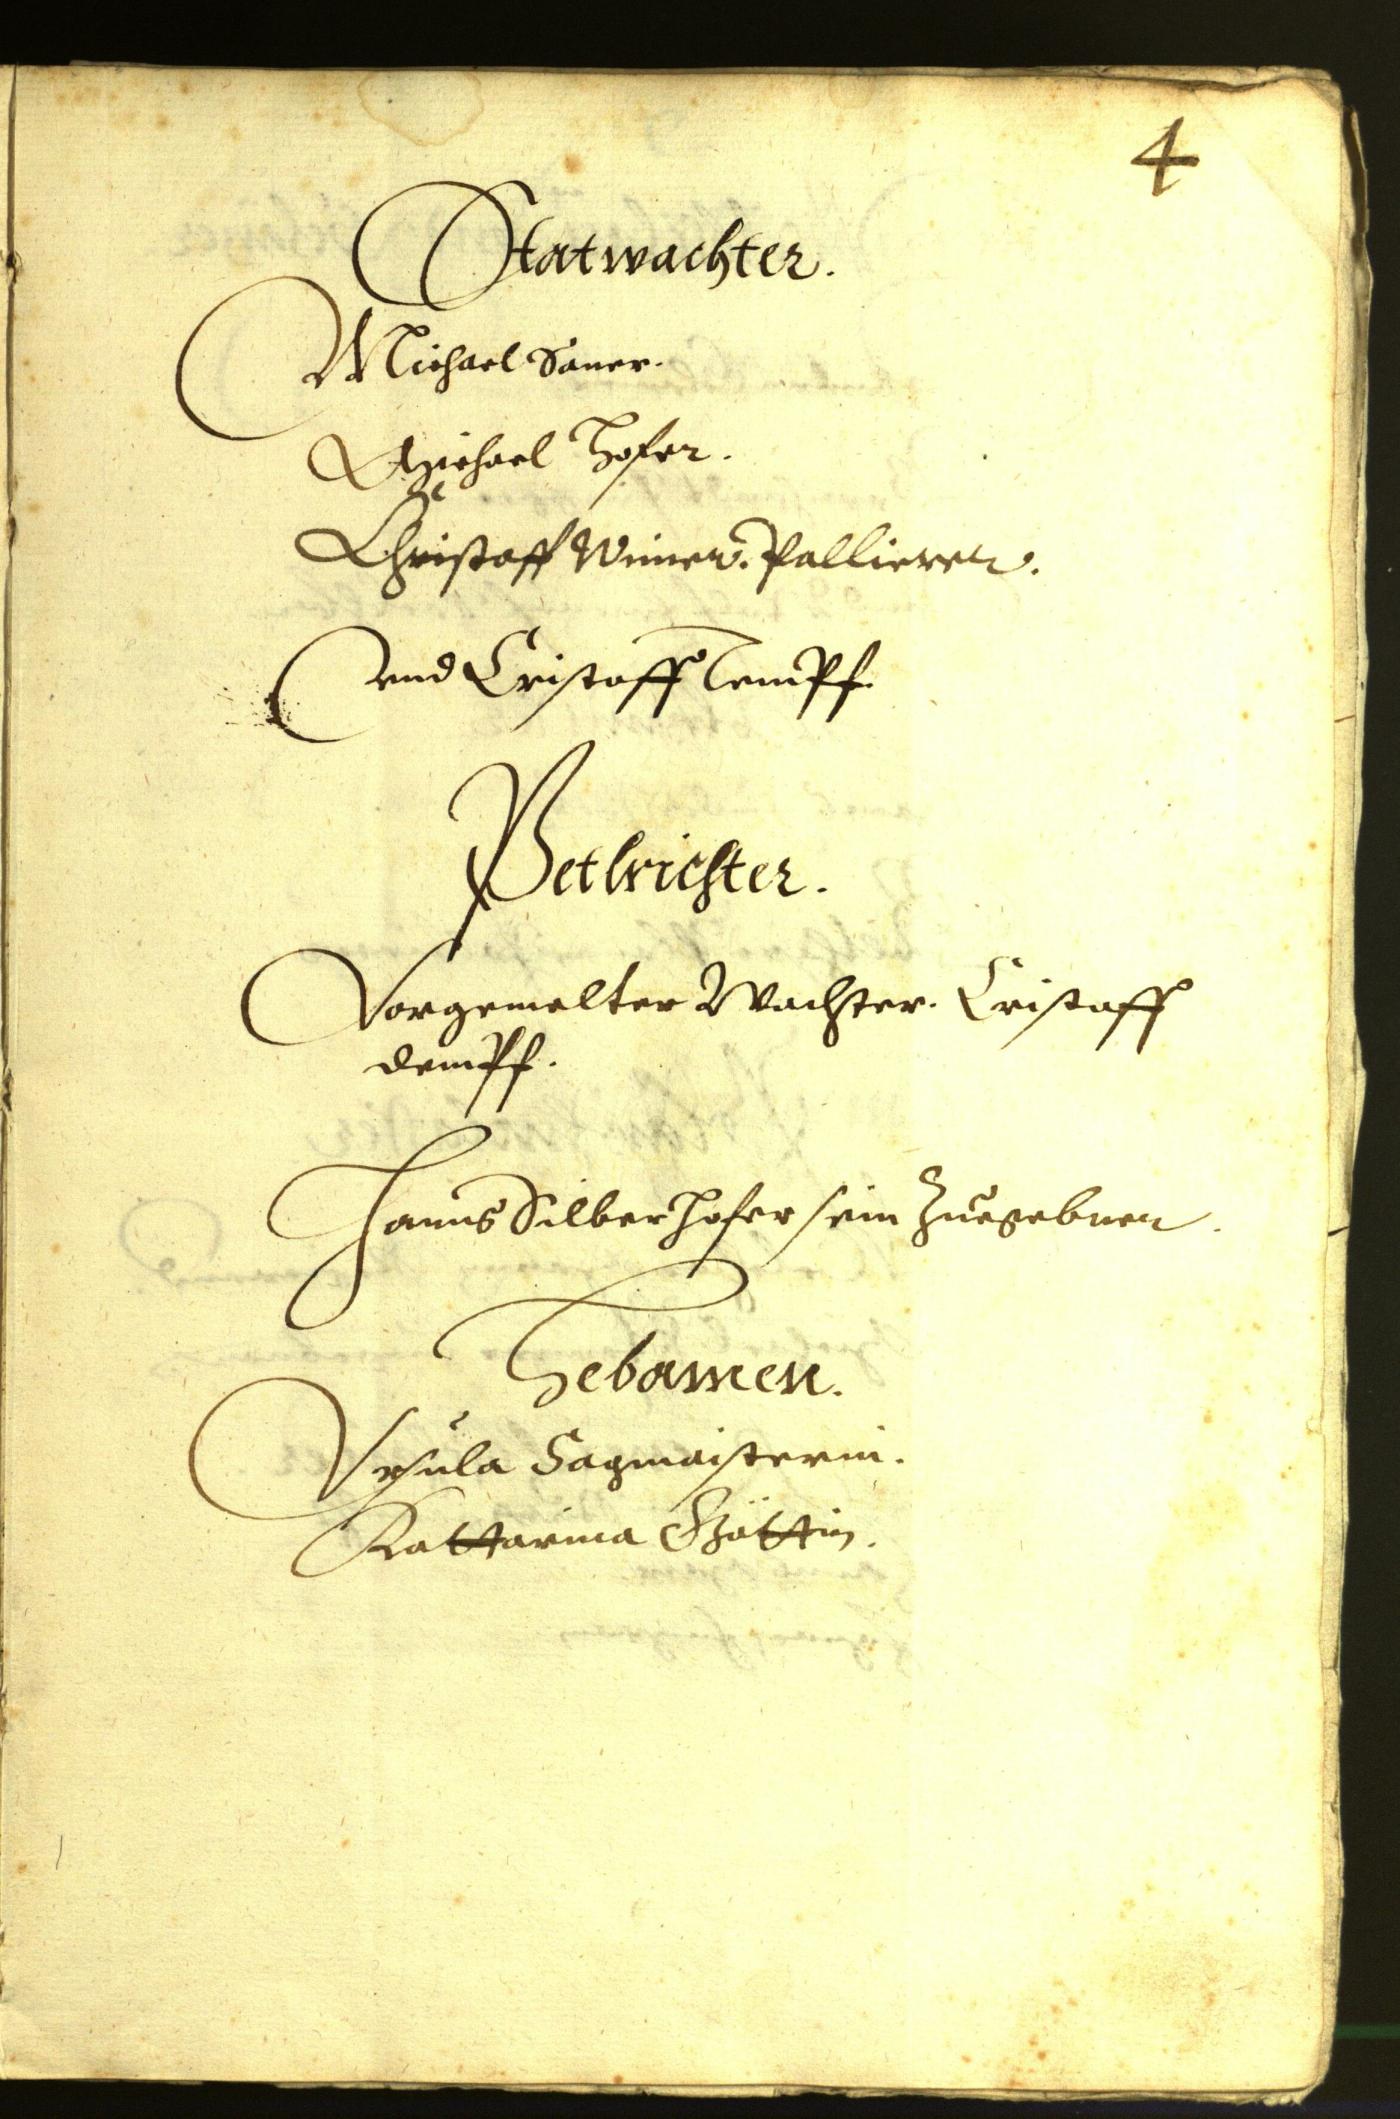 4
Statwachter.
Michael Saner.
Michael Hofer.
Christoff Winer. Pallierer.
vnd Cristoff Tempf
Betlrichter.
Vorgemelter Wachter. Cristoff
dempf.
Hanns Silberhofer sein Zuegebner.
Hebamen.
Vrsula Sagmaisterin.
Kattarina